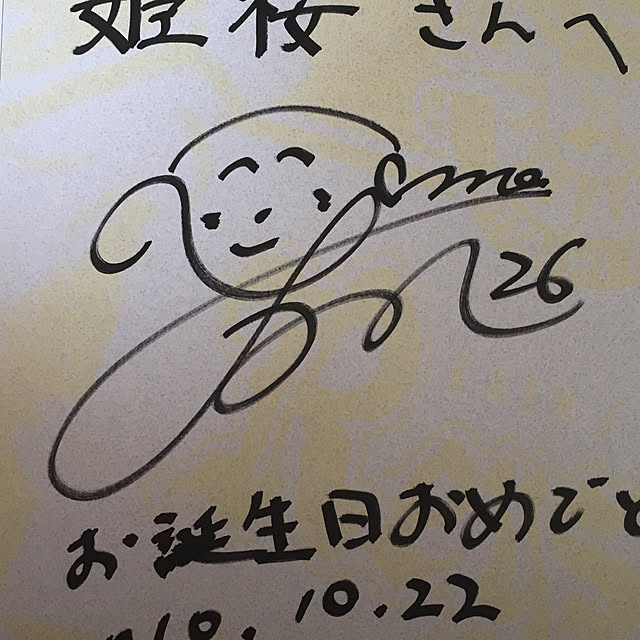 姫桜さんへ
26
お誕生日おめでと
10.22